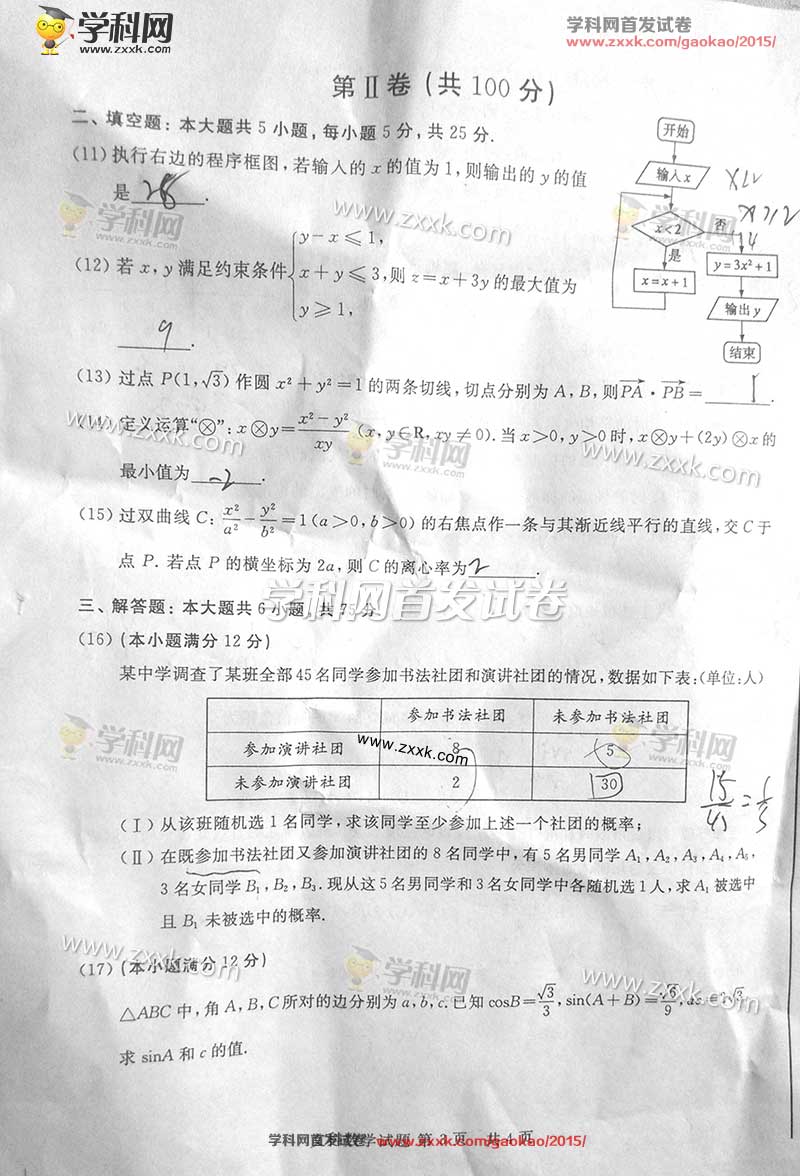 学科网
www.zxxk.com
学科网首发试卷
www.zxxk.com/gaokao/2015/
第Ⅱ卷(共100分)
二、填空题：本大题共5小题，每小题5分，共25分.
(11)执行右边的程序框图，若输入的x的值为1，则输出的y的值
是 28 .
开始
输入x
x<2
否
是
x=x+1
y=3x²+1
输出y
结束
(12)若x，y满足约束条件{y-x≤1,
x+y≤3,则z=x+3y的最大值为
y≥1,
9 .
(13)过点P(1,√3)作圆x²+y²=1的两条切线，切点分别为A，B，则PA·PB=
定义运算“⊗”：x⊗y=(x²-y²)/xy (x,y∈R,xy≠0).当x>0，y>0时，x⊗y+(2y)⊗x的
最小值为 -2 .
(15)过双曲线C：x²/a²-y²/b²=1(a>0,b>0)的右焦点作一条与其渐近线平行的直线，交C于
点P.若点P的横坐标为2a，则C的离心率为 2 .
学科网首发试卷
三、解答题：本大题共6小题，共75分
(16)(本小题满分12分)
某中学调查了某班全部45名同学参加书法社团和演讲社团的情况，数据如下表：(单位：人)
参加书法社团 未参加书法社团
参加演讲社团 8 5
未参加演讲社团 2 30
www.zxxk.com
15/45=1/3
(Ⅰ)从该班随机选1名同学，求该同学至少参加上述一个社团的概率；
(Ⅱ)在既参加书法社团又参加演讲社团的8名同学中，有5名男同学A₁,A₂,A₃,A₄,A₅,
3名女同学B₁,B₂,B₃.现从这5名男同学和3名女同学中各随机选1人，求A₁被选中
且B₁未被选中的概率.
(17)(本小题满分12分)
△ABC中，角A，B，C所对的边分别为a,b,c.已知cosB=√3/3,sin(A+B)=√6/9,
求sinA和c的值.
学科网首发试卷 www.zxxk.com/gaokao/2015/
试题 第3页 共4页